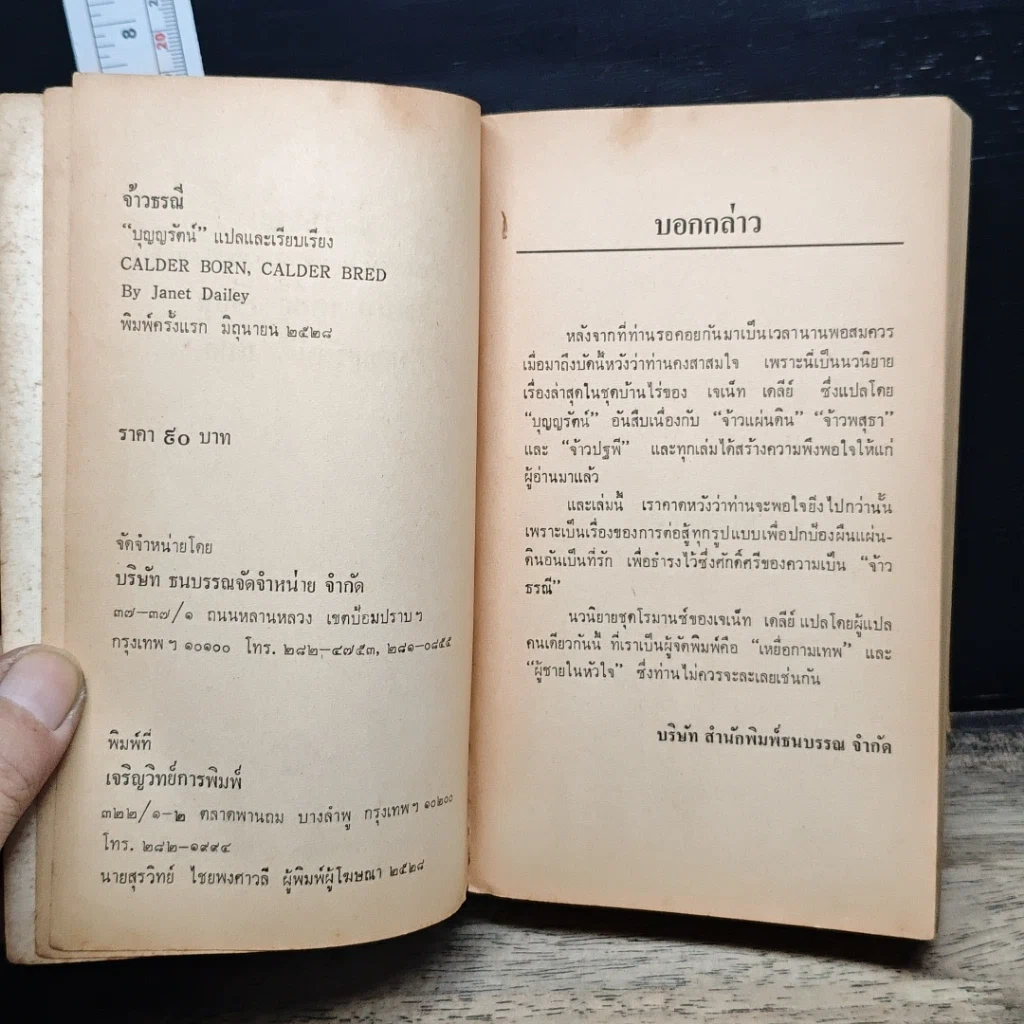 8
20
จ้าวธรณี
“บุญญรัตน์” แปลและเรียบเรียง
CALDER BORN, CALDER BRED
By Janet Dailey
พิมพ์ครั้งแรก มิถุนายน ๒๕๒๘
ราคา ๕๐ บาท
จัดจำหน่ายโดย
บริษัท ธนบรรณจัดจำหน่าย จำกัด
๓๗–๓๗/๑ ถนนหลานหลวง เขตป้อมปราบฯ
กรุงเทพฯ ๑๐๑๐๐ โทร. ๒๘๒–๔๗๕๓, ๒๘๑–๐๘๕๕
พิมพ์ที่
เจริญวิทย์การพิมพ์
๓๒๒/๑–๒ ตลาดพานถม บางลำพู กรุงเทพฯ ๑๐๒๐๐
โทร. ๒๘๒–๑๙๙๔
นายสุรวิทย์ ไชยพงศาวลี ผู้พิมพ์ผู้โฆษณา ๒๕๒๘
บอกกล่าว
หลังจากที่ท่านรอคอยกันมาเป็นเวลานานพอสมควร
เมื่อมาถึงบัดนี้หวังว่าท่านคงสาสมใจ เพราะนี่เป็นนวนิยาย
เรื่องล่าสุดในชุดบ้านไร่ของ เจเน็ท เดลีย์ ซึ่งแปลโดย
“บุญญรัตน์” อันสืบเนื่องกับ “จ้าวแผ่นดิน” “จ้าวพสุธา”
และ “จ้าวปฐพี” และทุกเล่มได้สร้างความพึงพอใจให้แก่
ผู้อ่านมาแล้ว
และเล่มนี้ เราคาดหวังว่าท่านจะพอใจยิ่งไปกว่านั้น
เพราะเป็นเรื่องของการต่อสู้ทุกรูปแบบเพื่อปกป้องผืนแผ่น-
ดินอันเป็นที่รัก เพื่อธำรงไว้ซึ่งศักดิ์ศรีของความเป็น “จ้าว
ธรณี”
นวนิยายชุดโรมานซ์ของเจเน็ท เดลีย์ แปลโดยผู้แปล
คนเดียวกันนี้ ที่เราเป็นผู้จัดพิมพ์คือ “เหยื่อกามเทพ” และ
“ผู้ชายในหัวใจ” ซึ่งท่านไม่ควรจะละเลยเช่นกัน
บริษัท สำนักพิมพ์ธนบรรณ จำกัด